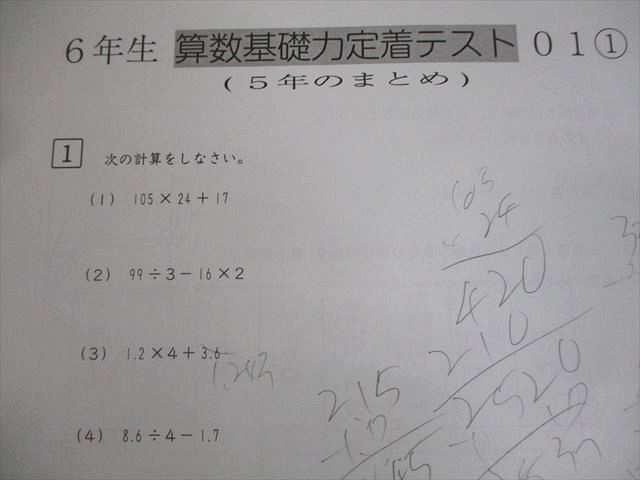 6年生 算数基礎力定着テスト 01①
(5年のまとめ)
1 次の計算をしなさい。
(1) 105×24+17
(2) 99÷3-16×2
(3) 1.2×4+3.6
(4) 8.6÷4-1.7
105
24
420
210
2520
215